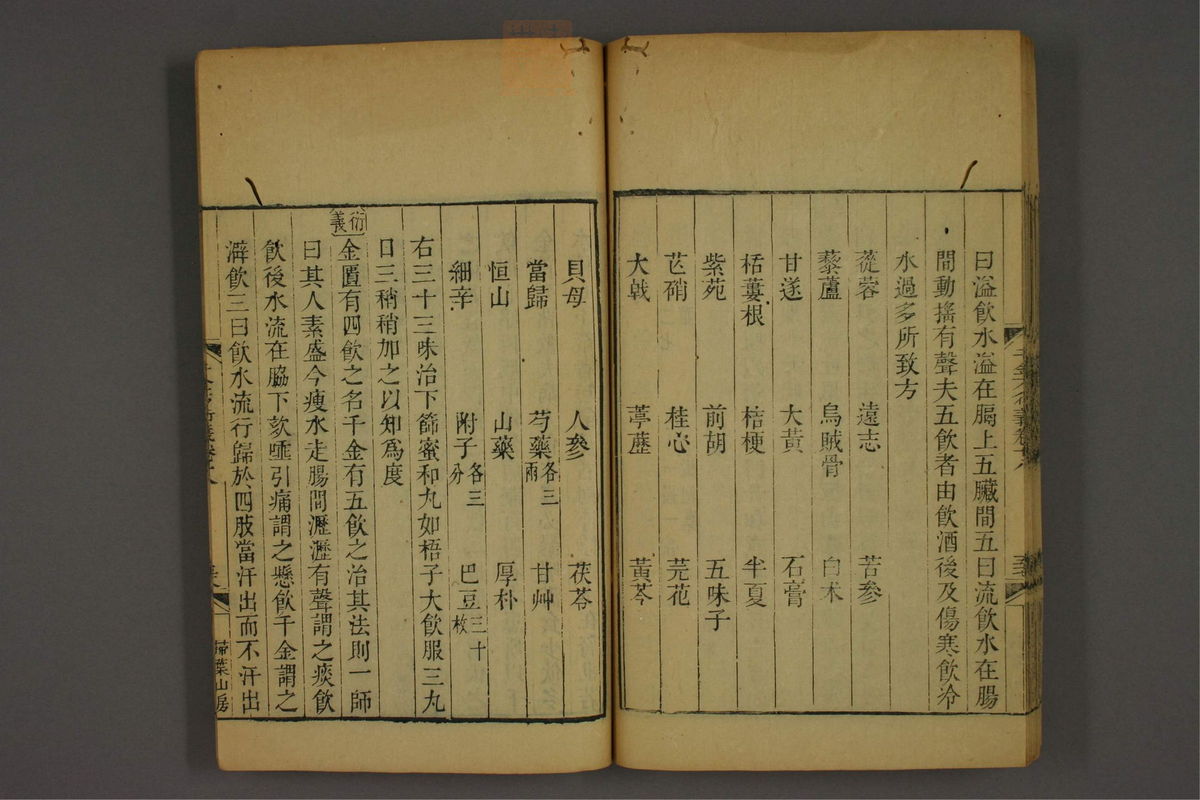 曰溢飲水溢在膈上五臟間五曰流飲水在腸
間動搖有聲夫五飲者由飲酒後及傷寒飲冷
水過多所致方
蓯蓉 遠志 苦參
藜蘆 烏賊骨 白朮
甘遂 大黃 石膏
栝蔞根 桔梗 半夏
紫苑 前胡 五味子
芒硝 桂心 芫花
大戟 葶藶 黃芩
貝母 人參 茯苓
當歸 芍藥各三兩 甘艸
恒山 山藥 厚朴
細辛 附子各三分 巴豆三十枚
右三十三味治下篩蜜和丸如梧子大飲服三丸
日三稍稍加之以知爲度
衍義
金匱有四飲之名千金有五飲之治其法則一師
曰其人素盛今瘦水走腸間瀝瀝有聲謂之痰飲
飲後水流在脇下欬唾引痛謂之懸飲千金謂之
澼飲三曰飲水流行歸於四肢當汗出而不汗出
掃葉山房